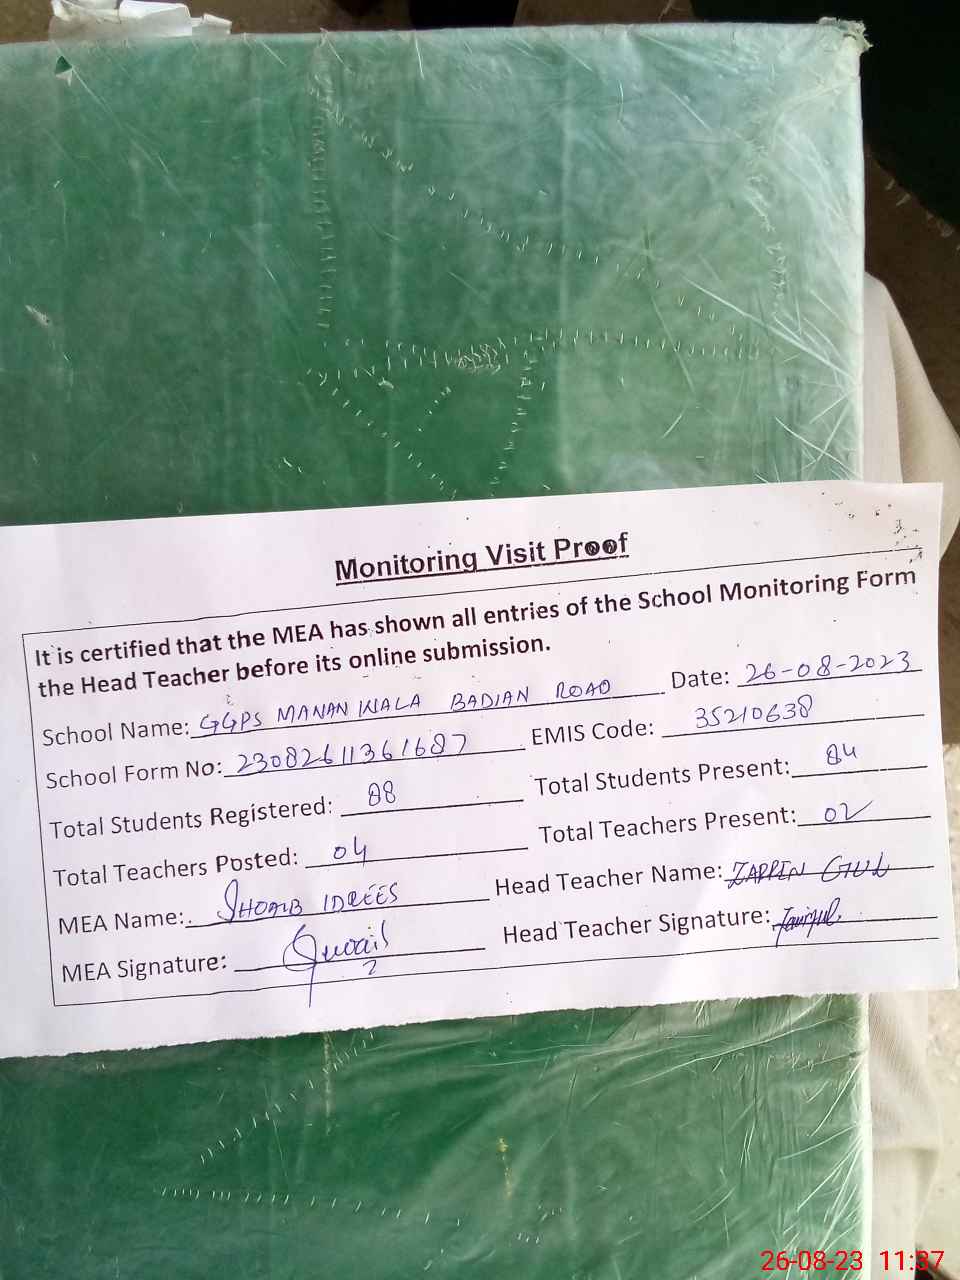 Monitoring Visit Proof
It is certified that the MEA has shown all entries of the School Monitoring Form
the Head Teacher before its online submission.
School Name: GGPS MANAN WALA BADIAN ROAD Date: 26-08-2023
School Form No: 23082611361687 EMIS Code: 35210638
Total Students Registered: 88 Total Students Present: 84
Total Teachers Posted: 04 Total Teachers Present: 02
MEA Name: SHOAIB IDREES Head Teacher Name: ZARRIN GUL
MEA Signature: Head Teacher Signature:
26-08-23 11:37